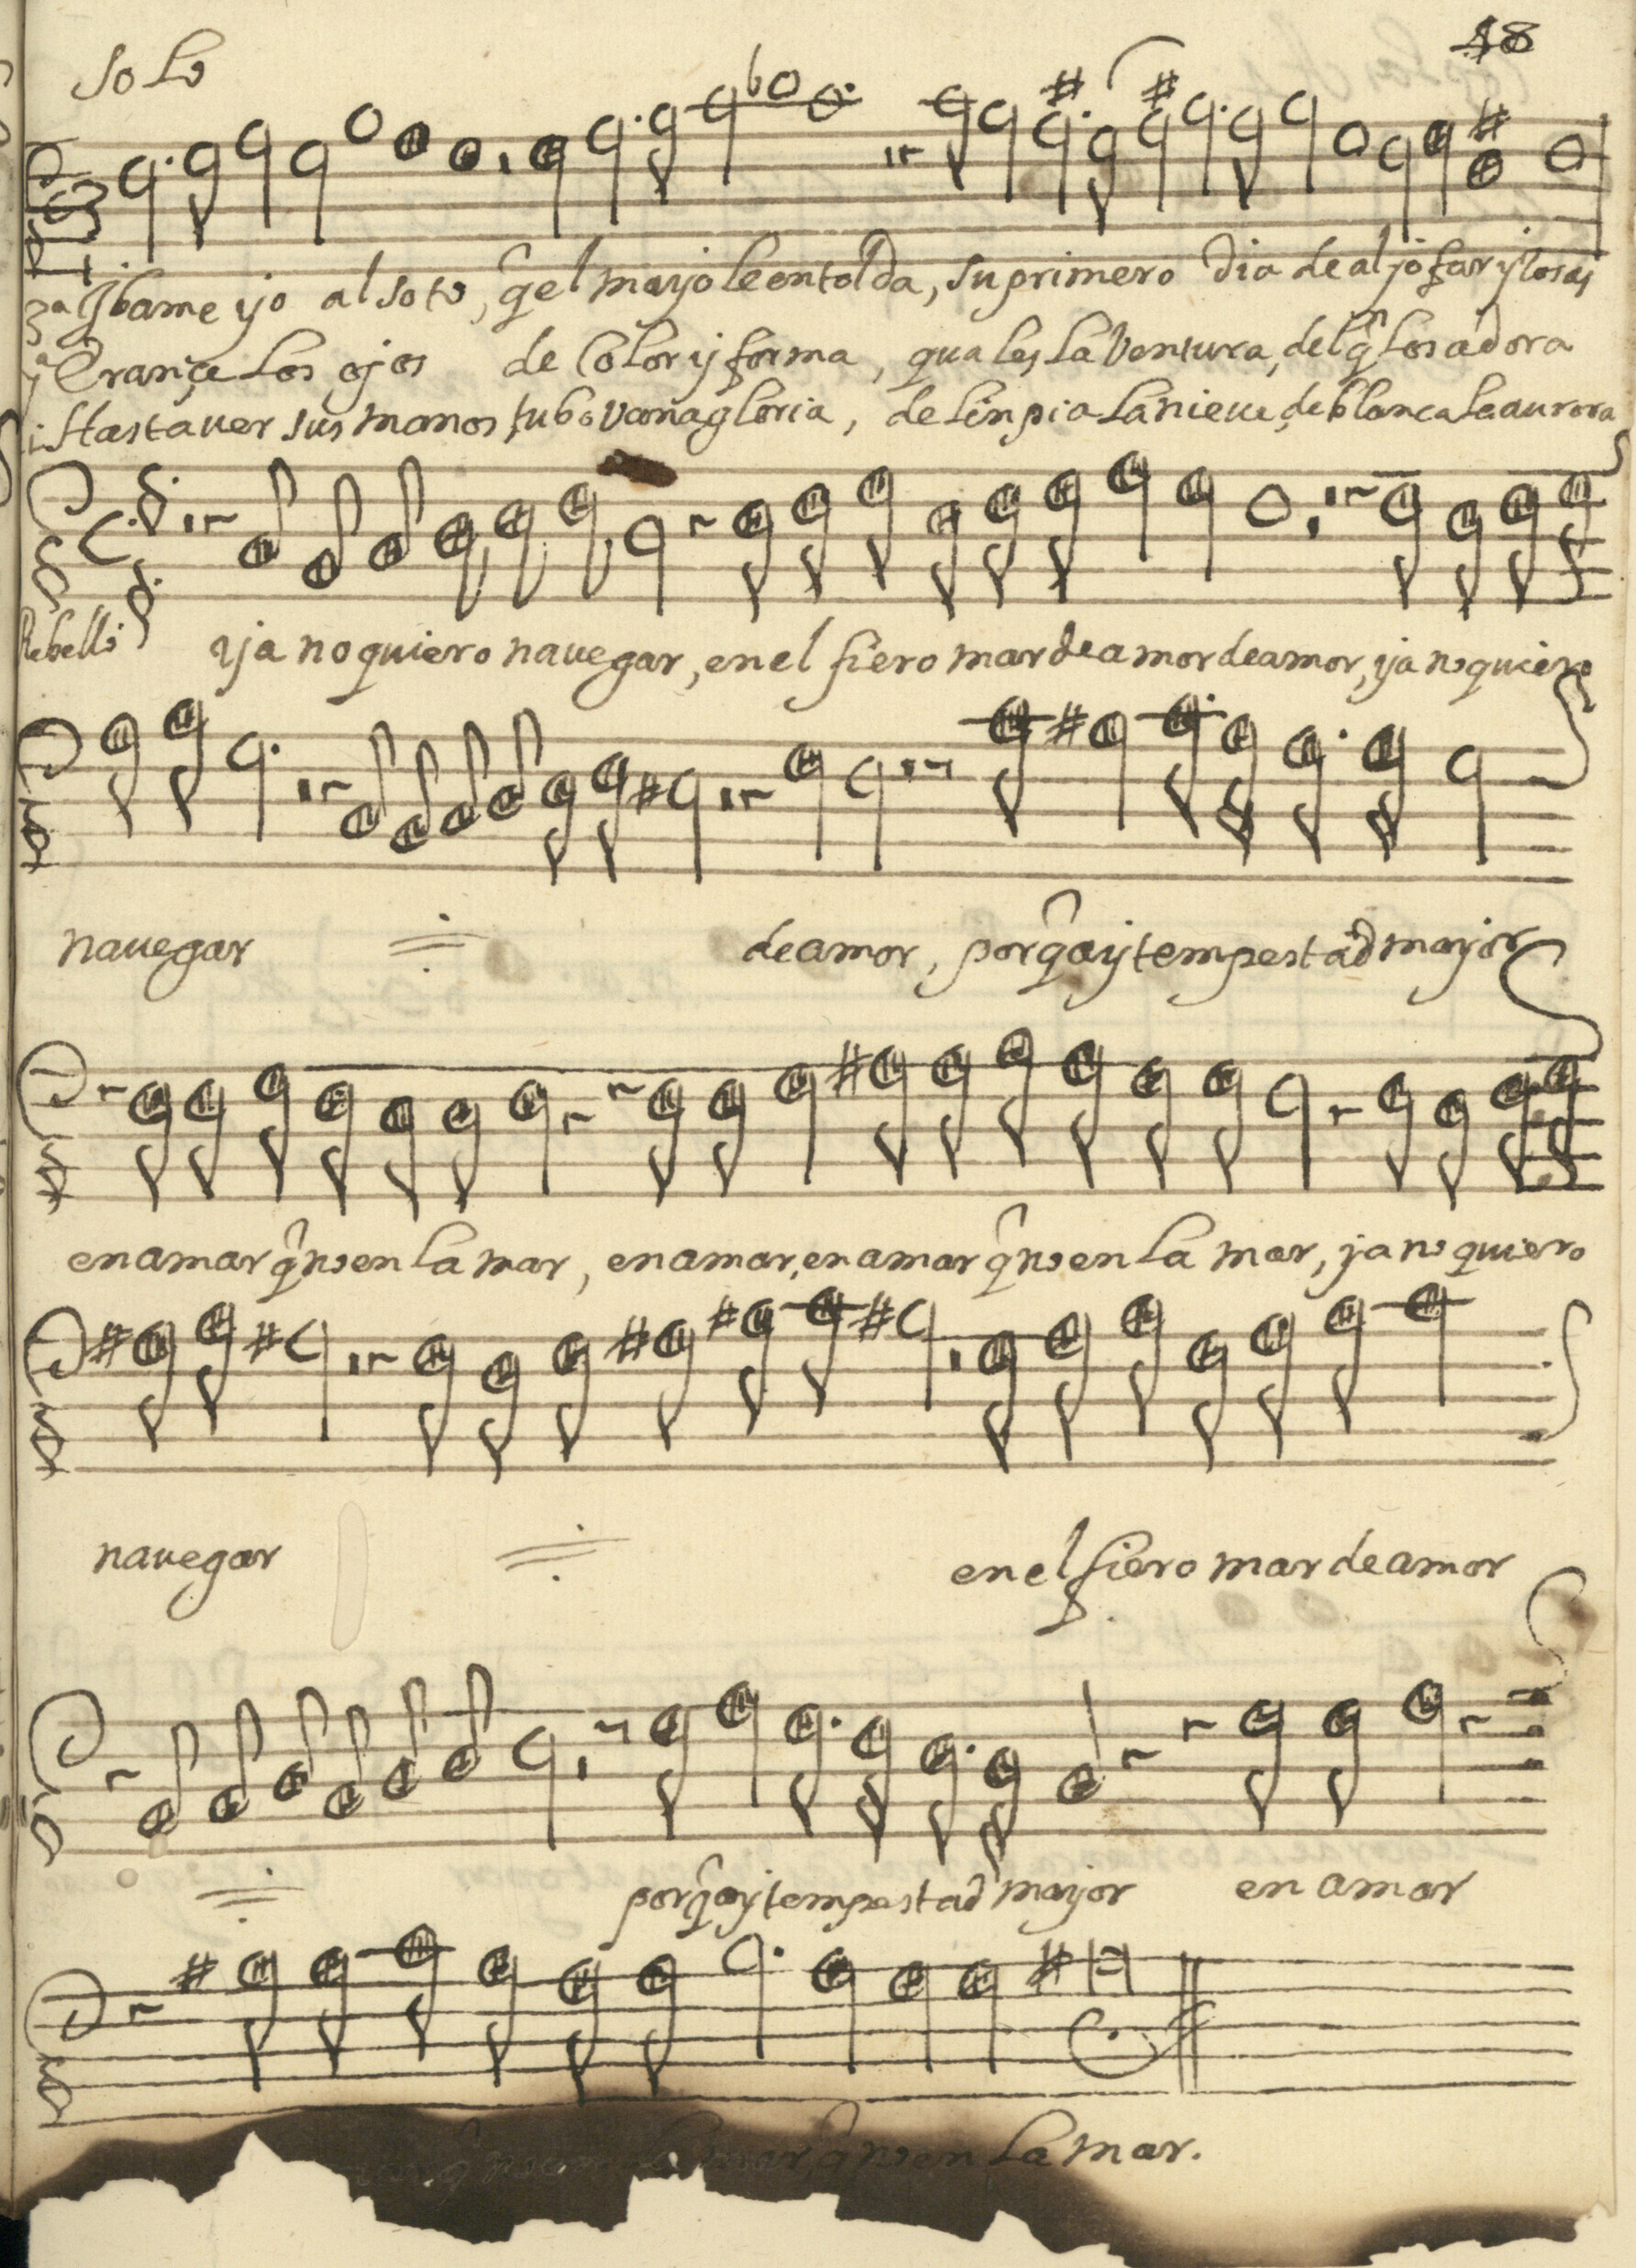 18
solo
3ª Ybame yo al soto, q̂ el mayo le entolda, su primero dia de aljofar y rosas
Erançe los ojos de Color y forma, quales la Ventura, del q̂ los adora
Hasta uer sus manos, tubo Vanagloria, de linpia la nieue, de blanca la aurora
ya no quiero nauegar, en el fiero mar de amor de amor, ya no quiero
nauegar de amor, porq̂ ay tempestad mayor
en amar q̂ no en la mar, en amar, en amar q̂ no en la mar, ya no quiero
nauegar en el fiero mar de amor
porq̂ ay tempestad mayor en amar
q̂ no en la mar, q̂ no en la mar.